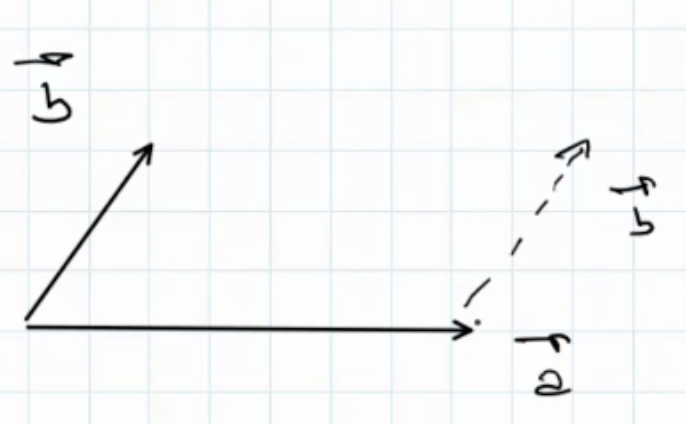 b⃗
b⃗
a⃗